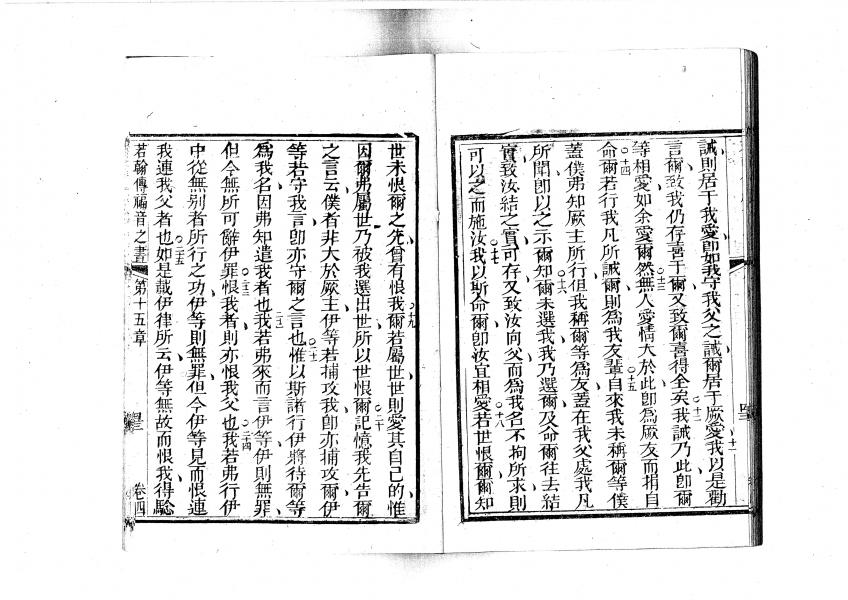 誡則居于我愛卽如我守我父之誡爾居于厥愛我以是勸
言爾致我仍存喜于爾又致爾喜得全矣我誡乃此卽爾
等相愛如余愛爾然無人愛情大於此卽為厥友而捐自
命爾若行我凡所誡爾則為我友輩自來我未稱爾等僕
蓋僕弗知厥主所行但我稱爾等為友蓋在我父處我凡
所聞卽以之示爾知爾未選我我乃選爾及命爾往去結
實致汝結之實可存又致汝向父而為我名不拘所求則
可以之而施汝我以斯命爾卽汝宜相愛若世恨爾爾知
世未恨爾之先曾有恨我爾若屬世世則愛其自己的惟
因爾弗屬世乃被我選出世所以世恨爾記憶我先告爾
之言云僕者非大於厥主伊等若捕攻我卽亦捕攻爾伊
等若守我言卽亦守爾之言也惟以斯諸行伊將待爾等
為我名因弗知遣我者也我若弗來而言伊等伊則無罪
但今無所可辭伊罪恨我者則亦恨我父也我若弗行伊
中從無別者所行之功伊等則無罪但今伊等見而恨連
我連我父者也如是載伊律所云伊等無故而恨我得驗
若翰傳福音之書 第十五章 卷四